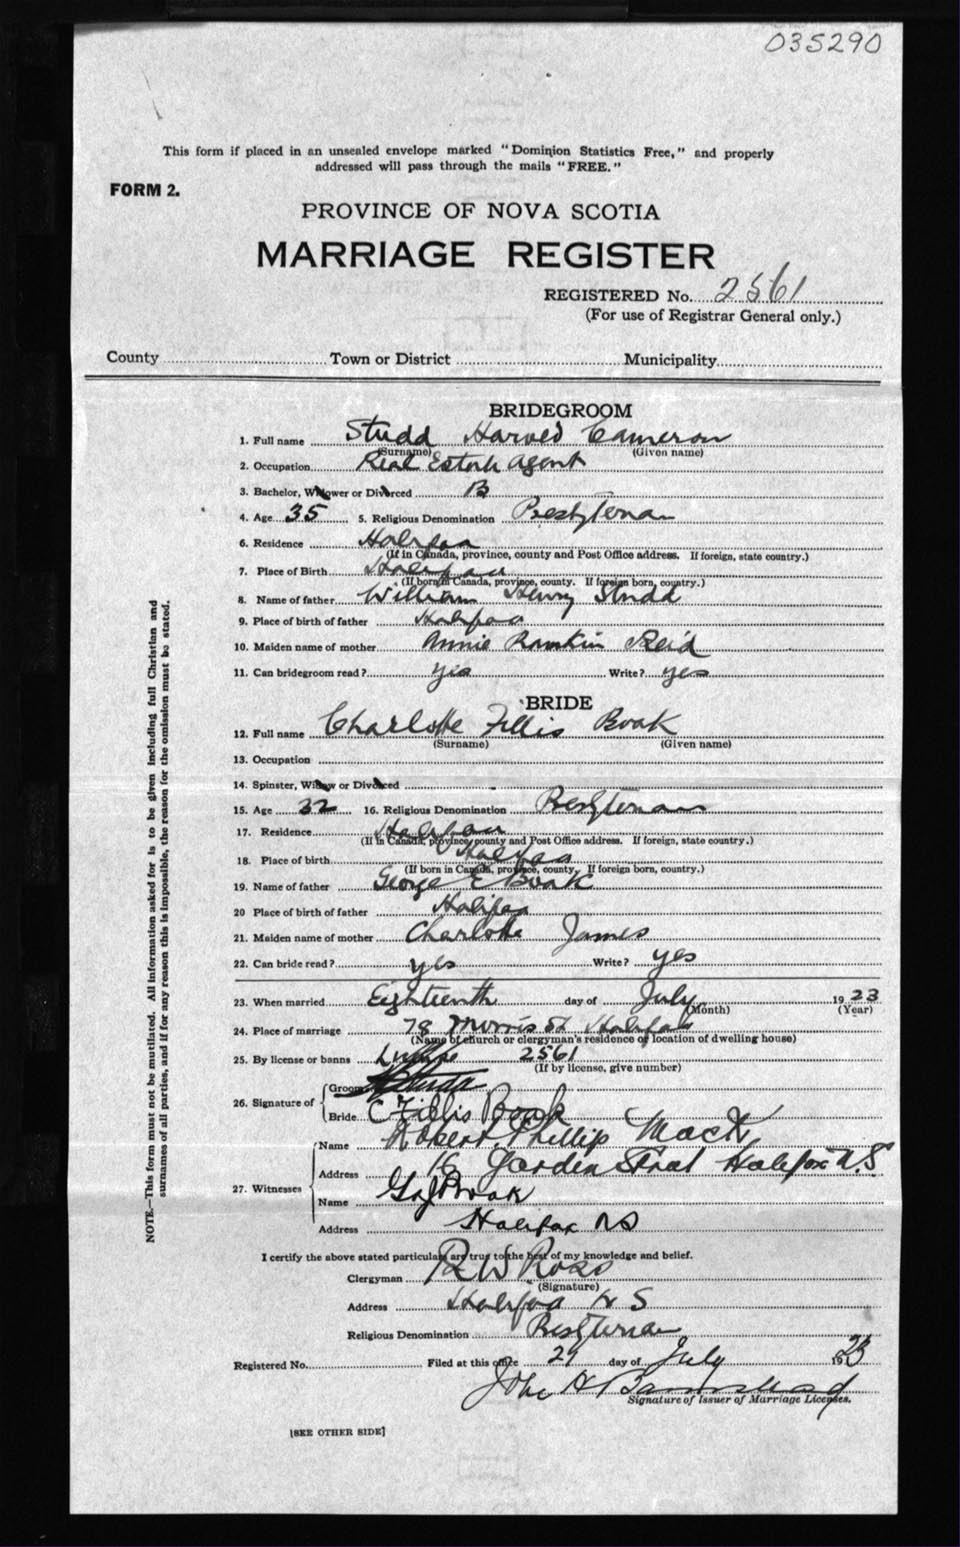 035290
This form if placed in an unsealed envelope marked "Dominion Statistics Free," and properly
addressed will pass through the mails "FREE."
FORM 2.
PROVINCE OF NOVA SCOTIA
MARRIAGE REGISTER
REGISTERED No. 2561
(For use of Registrar General only.)
County Town or District Municipality
BRIDEGROOM
1. Full name Studd Harved Cameron
(Surname) (Given name)
2. Occupation Real Estate Agent
3. Bachelor, Widower or Divorced B
4. Age 35 5. Religious Denomination Presbyterian
6. Residence Halifax
(If in Canada, province, county and Post Office address. If foreign, state country.)
7. Place of Birth Halifax
(If born in Canada, province, county. If foreign born, country.)
8. Name of father William Henry Studd
9. Place of birth of father Halifax
10. Maiden name of mother Annie Rankin Reid
11. Can bridegroom read? yes Write? yes
BRIDE
12. Full name Charlotte Fillis Boak
(Surname) (Given name)
13. Occupation
14. Spinster, Widow or Divorced
15. Age 32 16. Religious Denomination Presbyterian
17. Residence Halifax
(If in Canada, province, county and Post Office address. If foreign, state country.)
18. Place of birth Halifax
(If born in Canada, province, county, If foreign born, country.)
19. Name of father George E Boak
20 Place of birth of father Halifax
21. Maiden name of mother Charlotte James
22. Can bride read? yes Write? yes
23. When married Eighteenth day of July 1923
(Month) (Year)
24. Place of marriage 78 Morris St Halifax
(Name of church or clergyman's residence or location of dwelling house)
25. By license or banns License 2561
(If by license, give number)
26. Signature of
Groom
Bride C Fillis Boak
27. Witnesses
Name Robert Phillip Mack
Address 16 Garden Street Halifax N.S
Name Boak
Address Halifax NS
I certify the above stated particulars are true to the best of my knowledge and belief.
Clergyman R W Ross
(Signature)
Address Halifax N S
Religious Denomination Presbyterian
Registered No. Filed at this office 27 day of July 1923
John H Barnstead
Signature of Issuer of Marriage Licenses.
[SEE OTHER SIDE]
NOTE.—This form must not be mutilated. All information asked for is to be given including full Christian and
surnames of all parties, and if for any reason this is impossible, the reason for the omission must be stated.